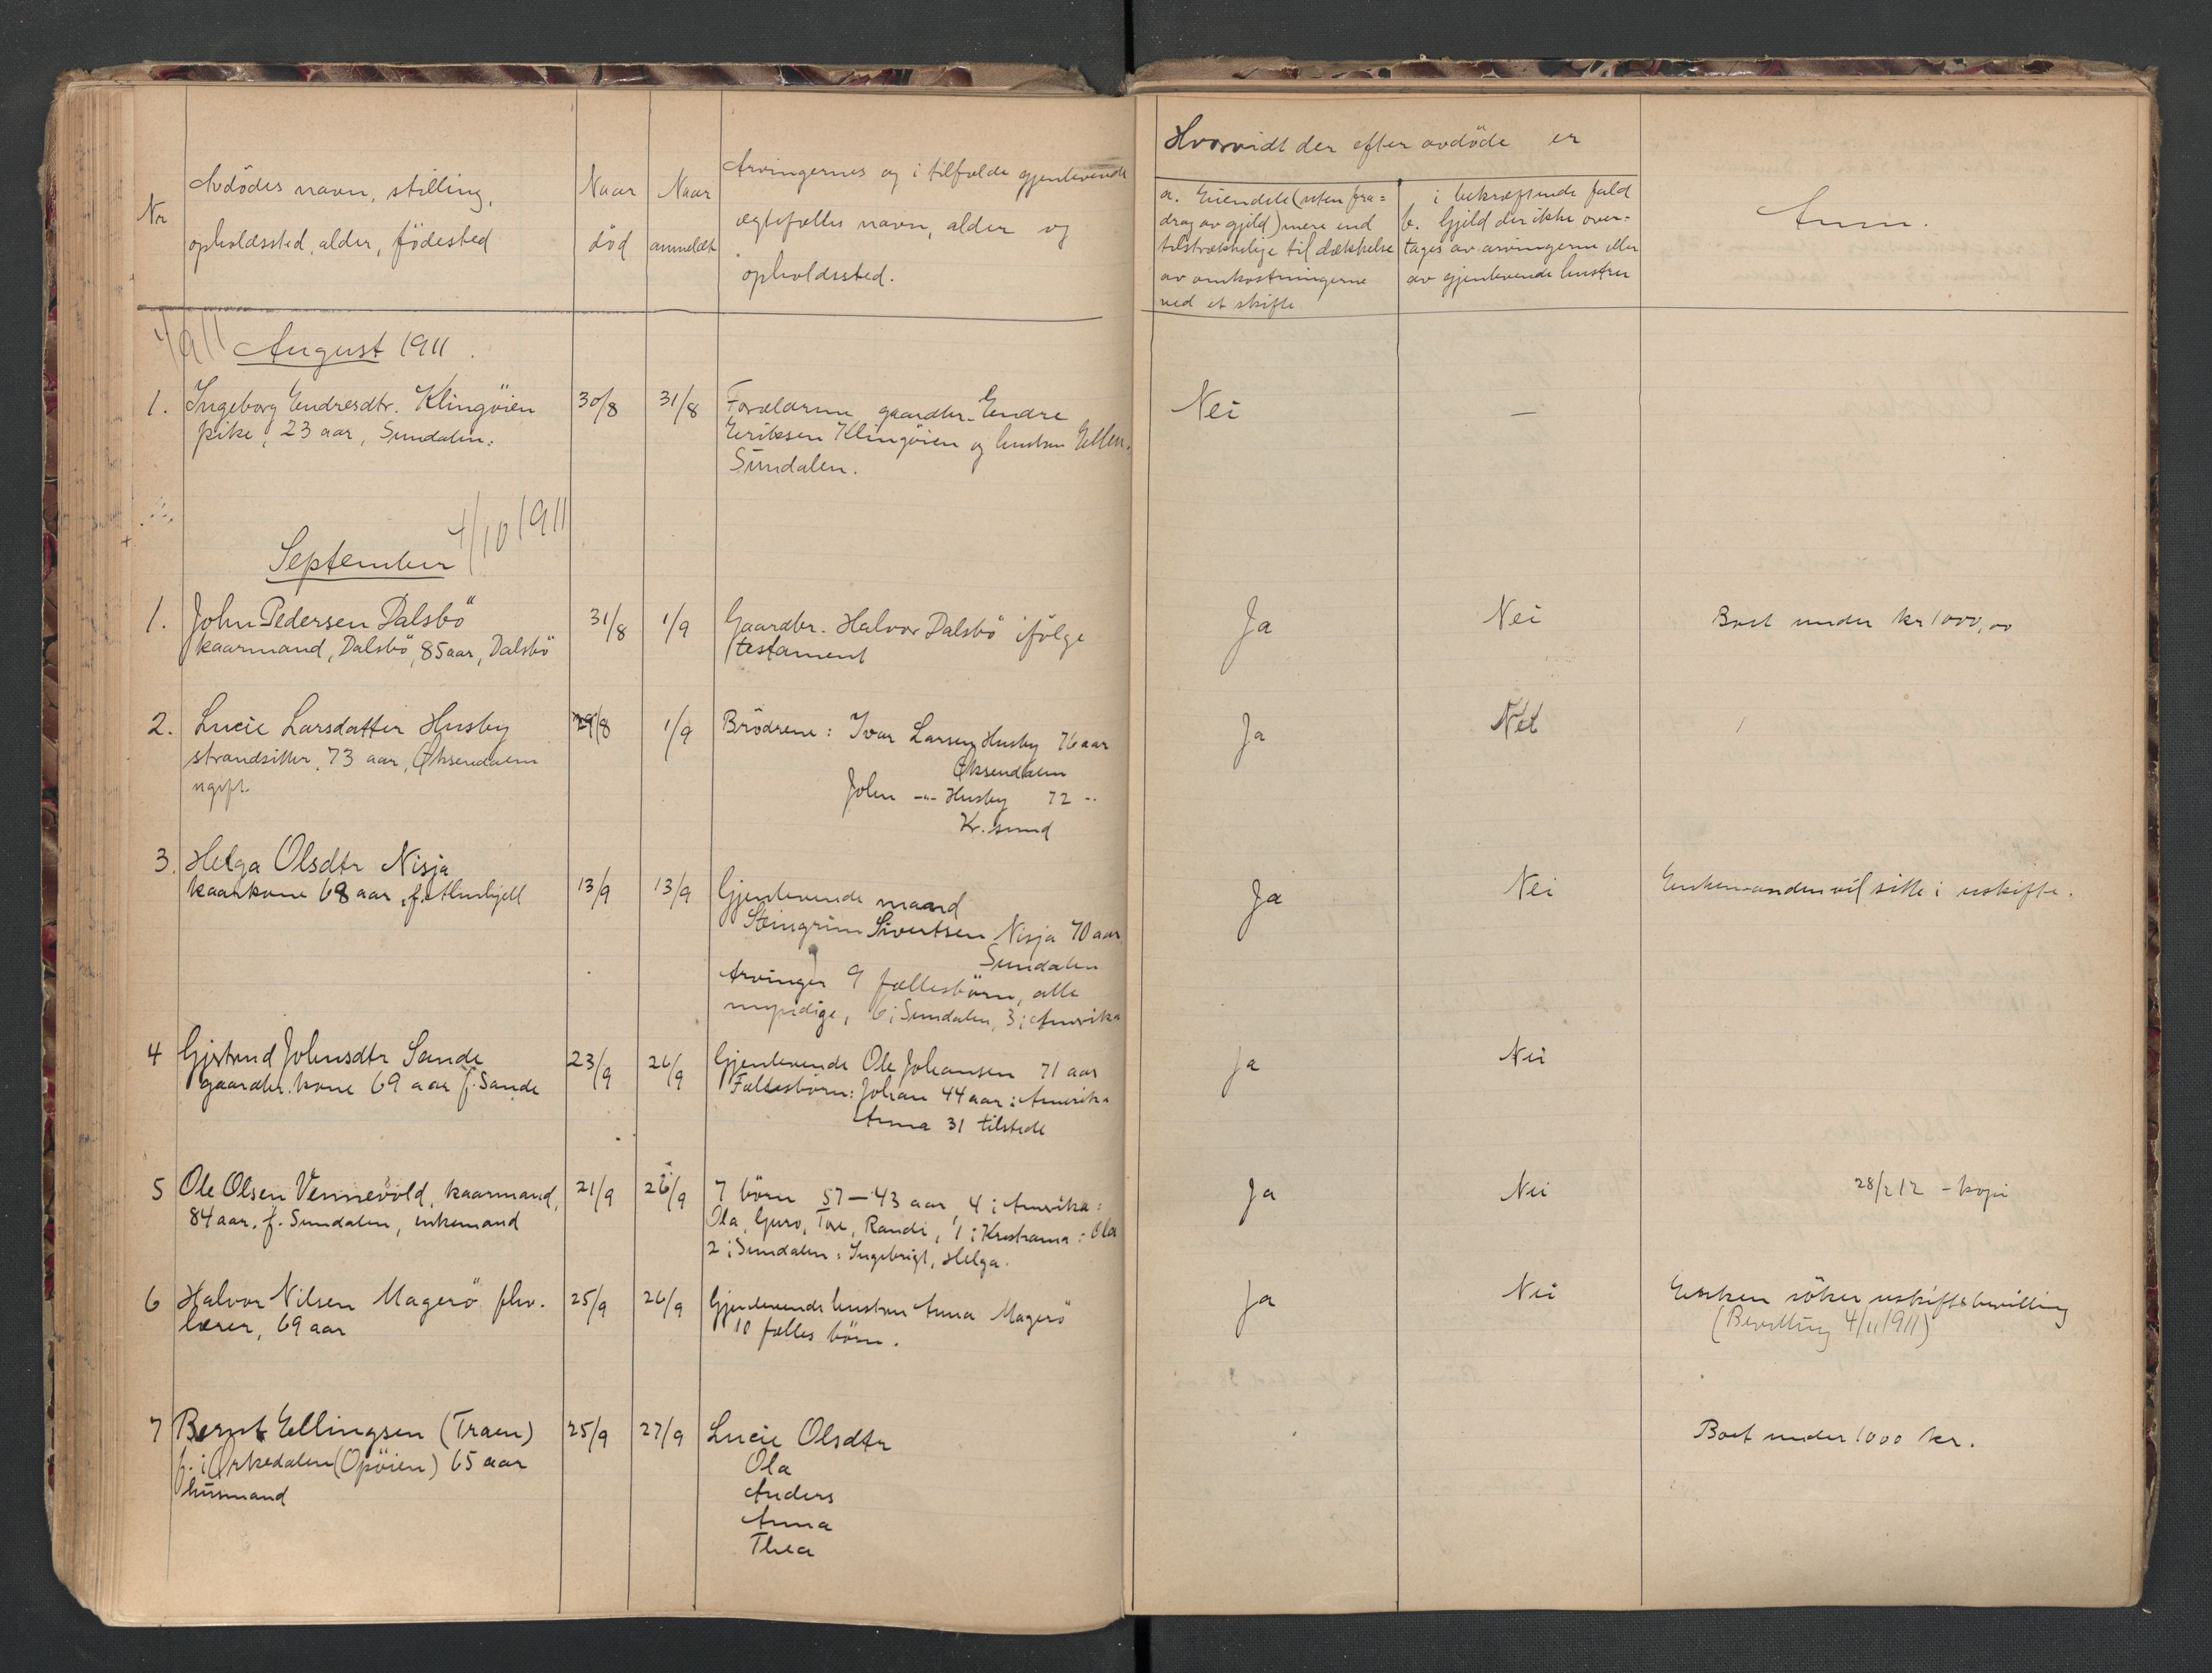 Nr
Avdödes navn, stilling,
opholdssted, alder, födested
Naar
död
Naar
anmeldt
Arvingernes og i tilfælde gjenlevende
egtefælles navn, alder og
opholdssted.
Hvorvidt der efter avdöde er
a. Eiendele (uten fra=
drag av gjeld) mere end
tilstrækkelige til dækkelse
av omkostningerne
ved et skifte
i bekræftende fald
b. Gjeld der ikke over=
tages av arvingerne eller
av gjenlevende hustru
Anm.
4/9 11
August 1911.
1. Ingeborg Endresdtr. Klingöien 30/8 31/8 Forældrene gaardbr. Endre Nei —
pike, 23 aar, Sundalen.
Eeriksen Klingöien og hustru Ellen.
Sundalen.
4/10 1911
September
1. John Pedersen Dalsbö 31/8 1/9 Gaardbr. Halvor Dalsbö ifölge Ja Nei Boet under kr 1000,00
kaarmand, Dalsbö, 85 aar, Dalsbö testament
2. Lucie Larsdatter Husby 29/8 1/9 Brödrene: Ivar Larsen Husby 76 aar Ja Nei
strandsitter, 73 aar, Øksendalen Øksendalen
ugift. John -"- Husby 72 -"-
Kr. sund
3. Helga Olsdtr Nisja
kaarkone 68 aar, f. 13/9 13/9 Gjenlevende mand Ja Nei Enkemanden vil sitte i uskifte.
Steingrim Sivertsen Nisja 70 aar
Sundalen
Arvinger 9 fællesbörn, alle
myndige, 6 i Sundalen, 3 i Amerika
4 Gjertrud Johnsdtr Sande 23/9 26/9 Gjenlevende Ole Johansen 71 aar Ja Nei
gaardbr. kone 69 aar f. Sande Fællesbörn: Johan 44 aar i Amerika
Anna 31 tilstede
5 Ole Olsen Vennevold, kaarmand, 21/9 26/9 7 börn 57 — 43 aar, 4 i Amerika: Ja Nei 28/2 12 - kopi
84 aar. f. Sundalen, enkemand Ola, Guro, Tore, Randi, 1 i Kristiania: Ola
2 i Sundalen: Ingebrigt, Helga.
6 Halvor Nilsen Magerö fhv. 25/9 26/9 Gjenlevende hustru Anna Magerö Ja Nei Enken söker uskiftebevilling
lærer, 69 aar 10 fælles börn. (Bevilling 4/11 1911)
7 Bernt Ellingsen (Træen) 25/9 27/9 Lucie Olsdtr Boet under 1000 kr.
f. i Orkedalen (Opöien) 65 aar Ola
husmand Anders
Anna
Thea